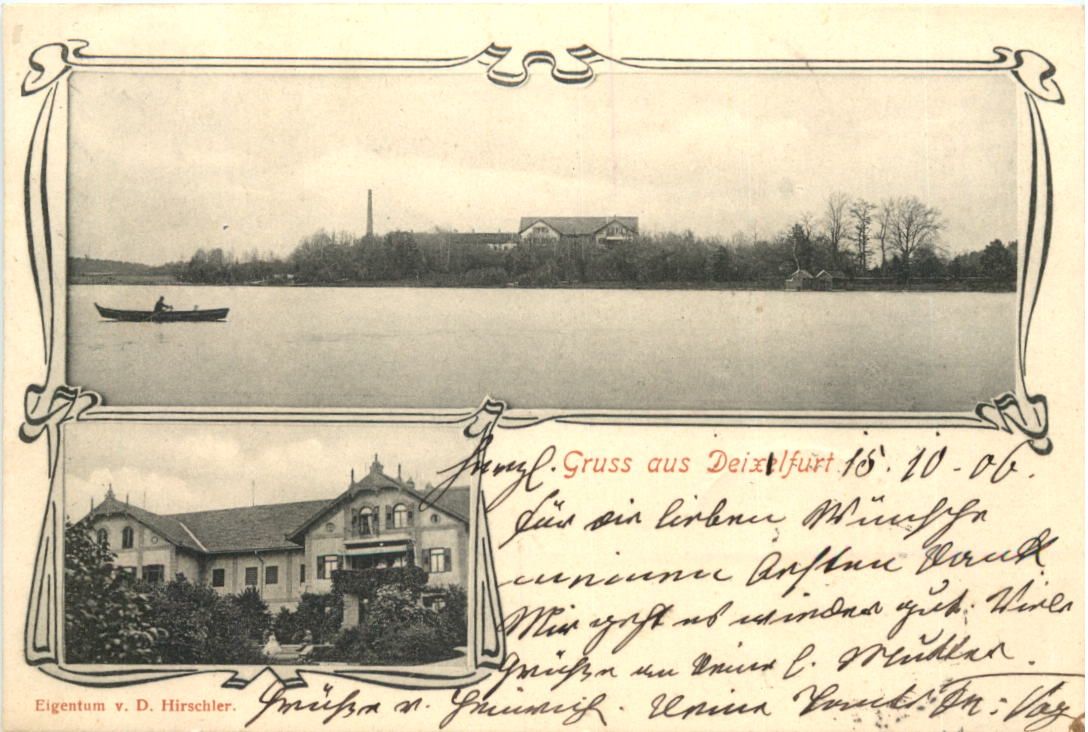 Herzl. Gruss aus Deixlfurt. 15.10.06.
für die lieben Wünsche
meinen besten Dank
Mir geht es wieder gut. Viele
Grüße an Deine l. Mutter.
Eigentum v. D. Hirschler.
Grüße v. Heinrich. Deine